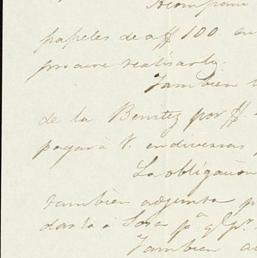 Acompaño
papeles de a $100 en
procure realisarlo.
Tambien
de la Benitez por $
pagará V. en diversas
La obligacion
tambien adjunta p
darla á Sosa pª q̃ pr.
Tambien a